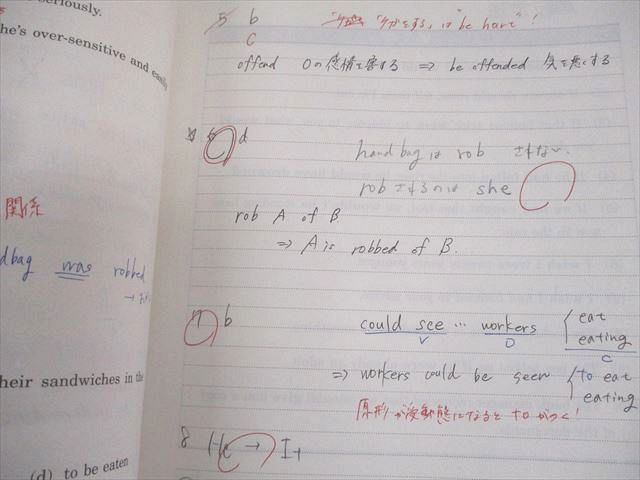 seriously.
he's over-sensitive and easily
関係
dbag was robbed
heir sandwiches in the
(d) to be eaten
5 b
「ケガをする」は "be hurt"!
C
offend Oの感情を害する ⇒ be offended 気を悪くする
6 d
handbag は rob されない.
rob されるのは she
rob A of B
⇒ A is robbed of B.
7 b
could see … workers { eat
eating
V O C
⇒ workers could be seen { to eat
eating
原形が受動態になると to がつく!
8 He → It